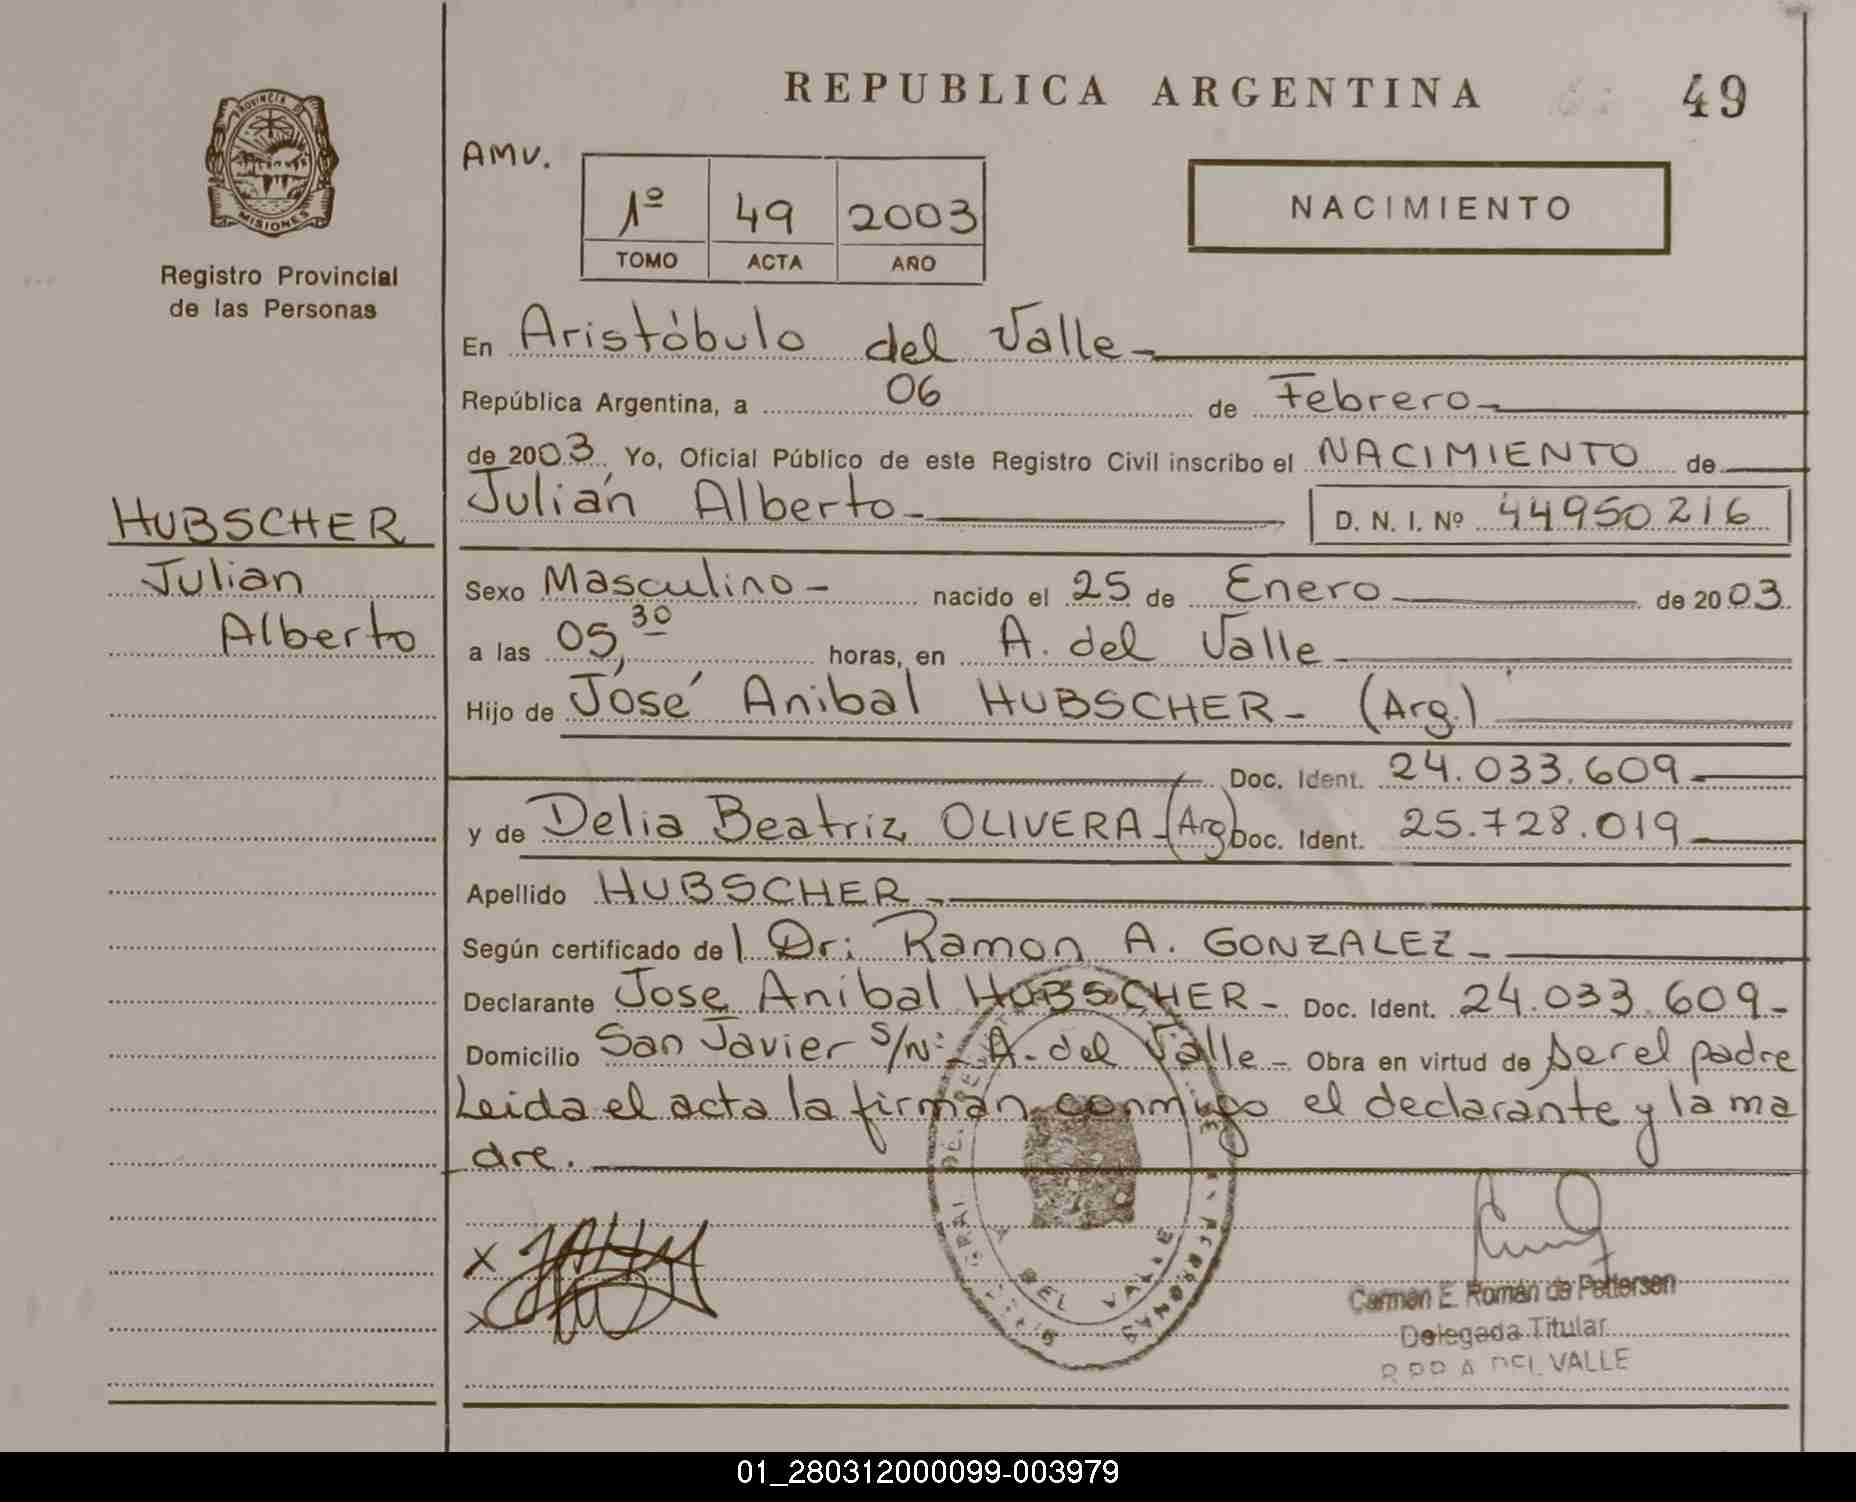 REPUBLICA ARGENTINA
49
PROVINCIA DE
MISIONES
Registro Provincial
de las Personas
AMV.
1º 49 2003
TOMO ACTA AÑO
NACIMIENTO
En Aristóbulo del Valle
República Argentina, a 06 de Febrero
de 2003 Yo, Oficial Público de este Registro Civil inscribo el NACIMIENTO de
Julián Alberto D. N. I. Nº 44950216
HUBSCHER
Julian
Alberto
Sexo Masculino nacido el 25 de Enero de 2003
a las 05,30 horas, en A. del Valle
Hijo de José Anibal HUBSCHER (Arg.)
Doc. Ident. 24.033.609
y de Delia Beatriz OLIVERA (Arg) Doc. Ident. 25.728.019
Apellido HUBSCHER
Según certificado del Dr: Ramon A. GONZALEZ
Declarante Jose Anibal HUBSCHER Doc. Ident. 24.033.609
Domicilio San Javier S/Nº A. del Valle Obra en virtud de ser el padre
Leida el acta la firman conmigo el declarante y la ma
dre.
DEL VALLE
Carmen E. Román de Pettersen
Delegada Titular
DEL VALLE
01_280312000099-003979